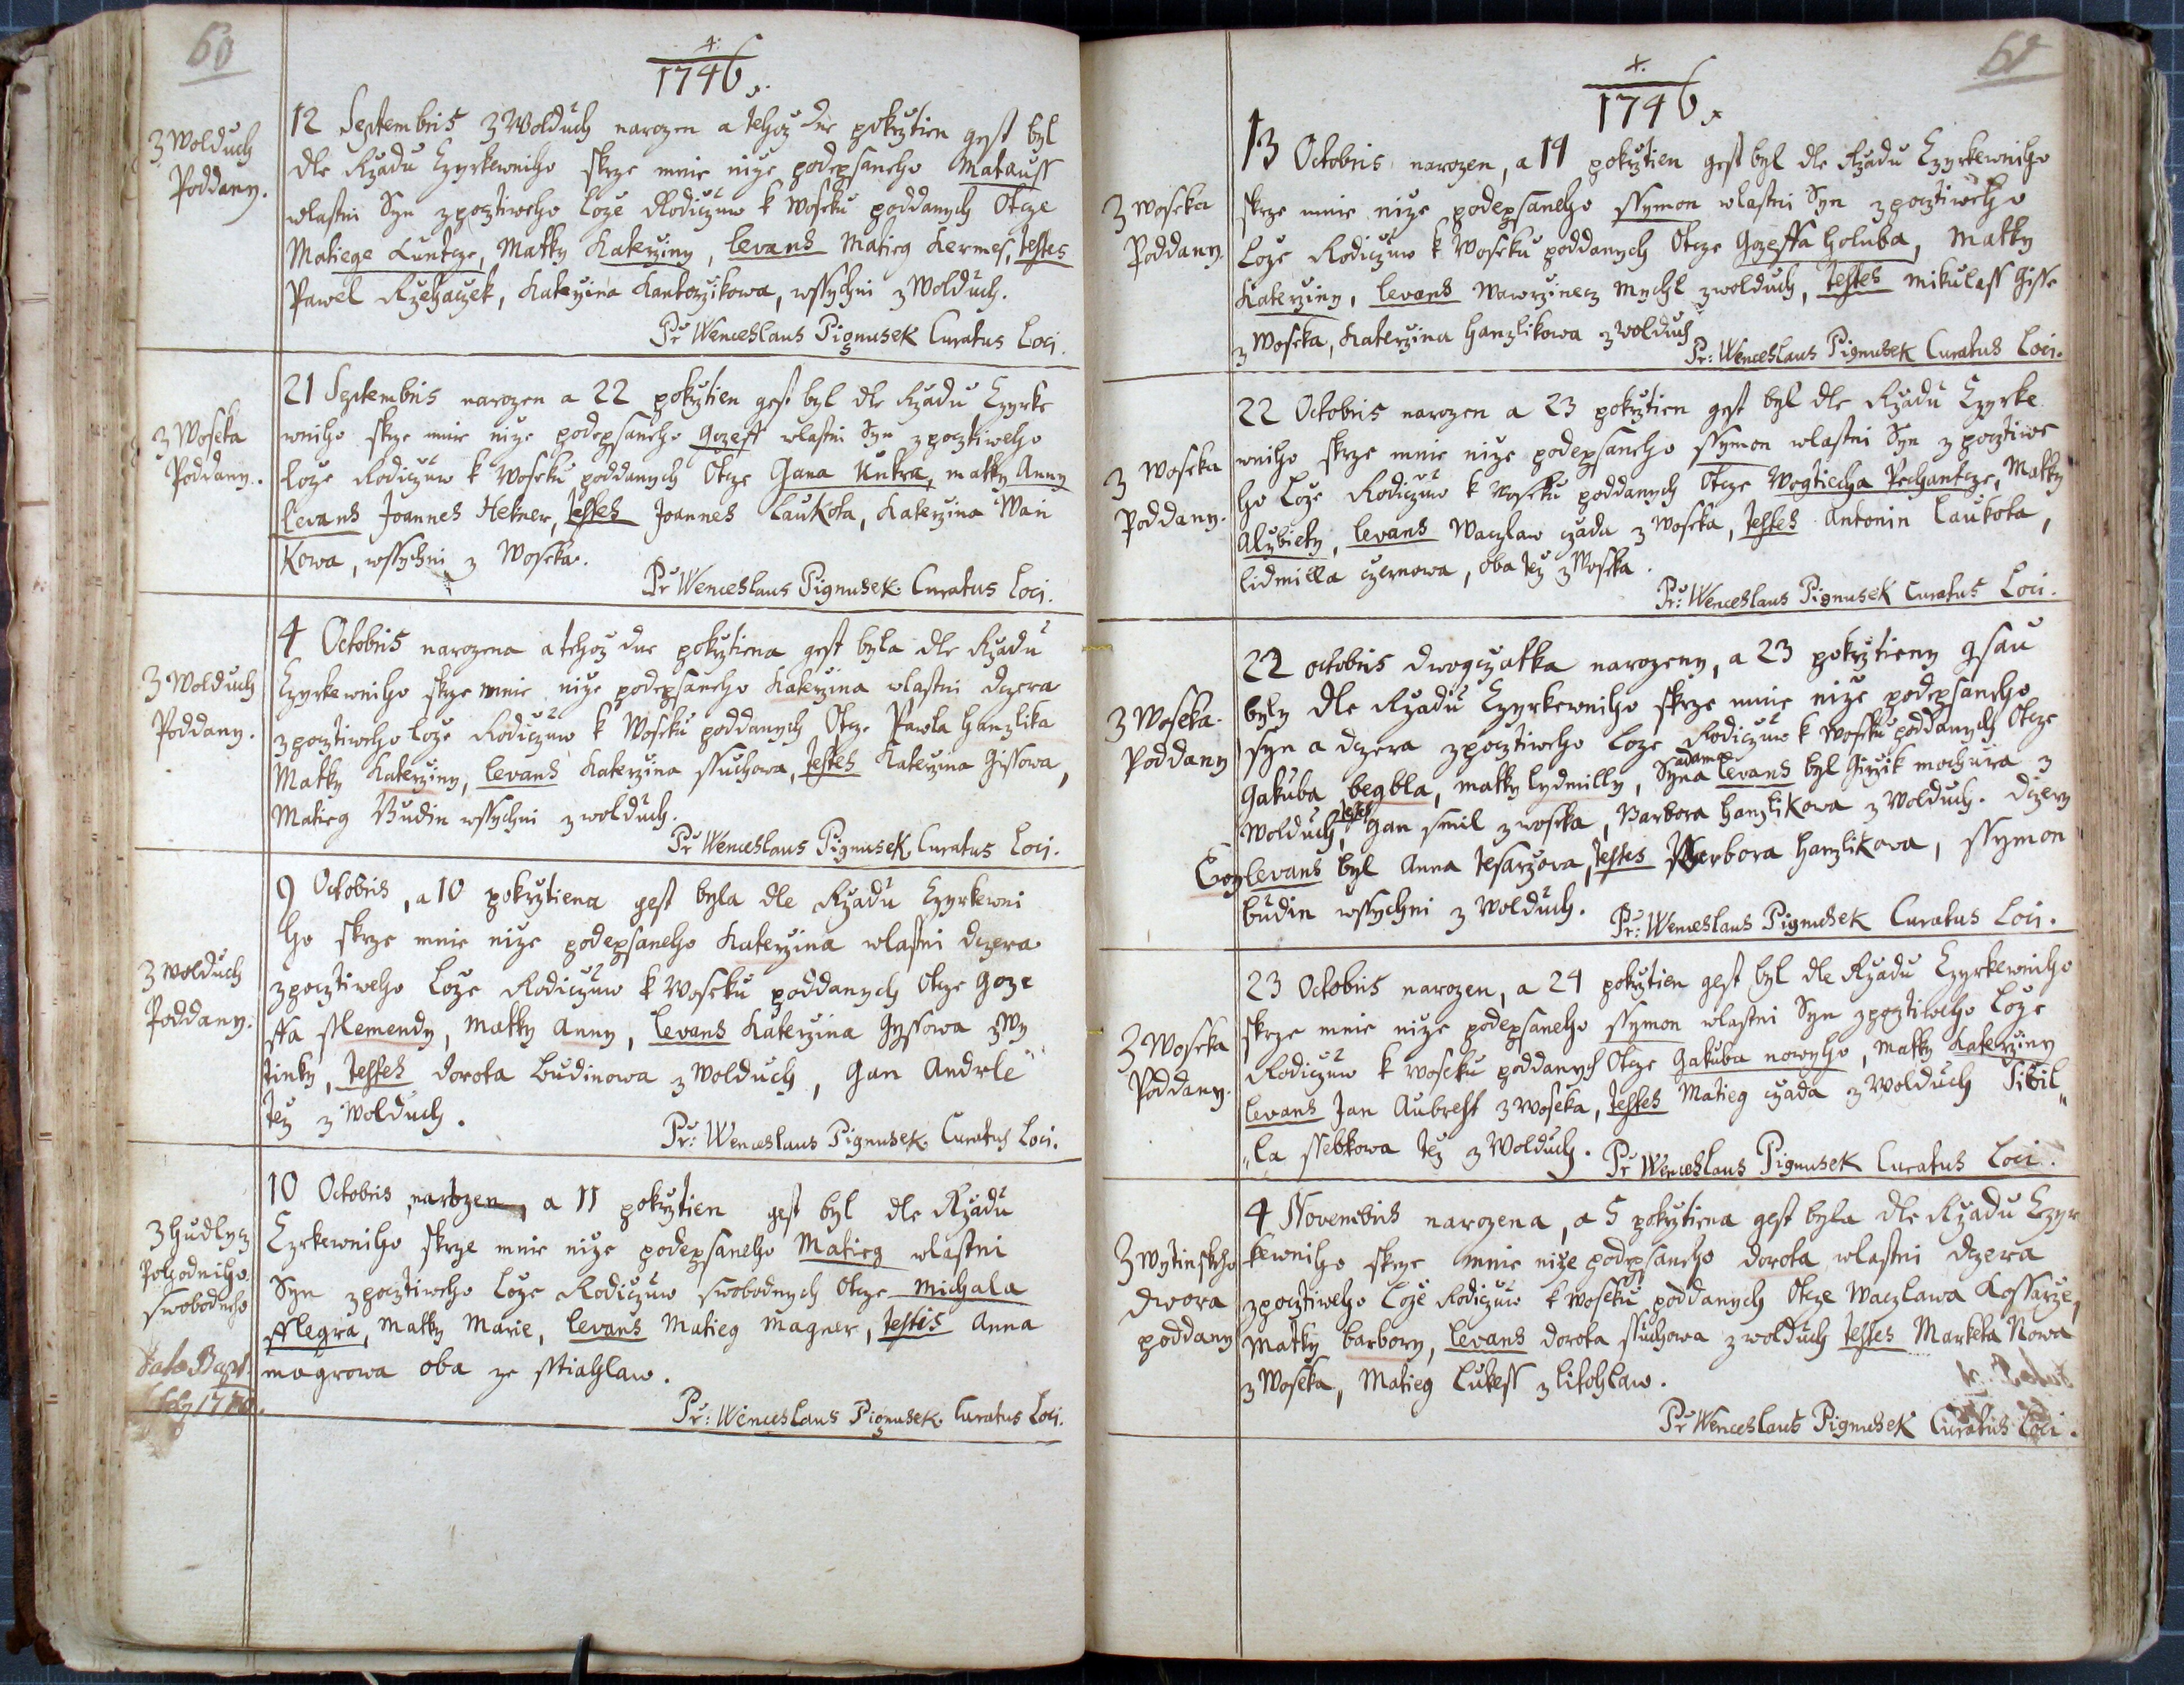 60
1746
z Wolduch
Poddany.
12 Septembris z Wolduch narozen a tehoz dne pokrztien gest byl
dle Rzadu Czyrkewniho skrze mnie nize podepsaneho Matauss
wlastni Syn z pocztiweho Loze Rodiczuw k Woseku poddanych Otcze
Matiege Luntcze, Matky Katerziny, levans Matieg Hermes, testes
Pawel Rzehaczek, Katerzina Kantorzikowa, wssychni z Wolduch.
Pr Wenceslaus Pignusek Curatus Loci.
z Woseka
Poddany.
21 Septembris narozen a 22 pokrztien gest byl dle Rzadu Czyrke
wniho skrze mnie nize podepsaneho Gozeff wlastni Syn z pocztiweho
loze Rodiczuw k Woseku poddanych Otcze Gana Unkra, matky Anny
levans Joannes Hetner, testes Joannes Laukota, Katerzina Wani
kowa, wssychni z Woseka.
Pr Wenceslaus Pignusek Curatus Loci.
z Wolduch
Poddany.
4 Octobris narozena a tehoz dne pokrztiena gest byla dle Rzadu
Czyrkewniho skrze mnie nize podepsaneho Katerzina wlastni dczera
z pocztiweho loze Rodiczuw k Woseku poddanych Otcze Pawla Hanzlika
Matky Katerziny, levans Katerzina ssuchowa, testes Katerzina Gissowa,
Matieg Budin wssychni z wolduch.
Pr Wenceslaus Pignusek Curatus Loci.
z wolduch
Poddany.
9 Octobris, a 10 pokrztiena gest byla dle Rzadu Czyrkewni
ho skrze mnie nize podepsaneho Katerzina wlastni dczera
z pocztiweho Loze Rodiczuw k Woseku poddanych Otcze Goze
ffa Klemendy, Matky Anny, levans Katerzina Gyssowa z Wy
tinky, testes dorota Budinowa z Wolduch, Gan Andrle
tez z Wolduch.
Pr: Wenceslaus Pignusek Curatus Loci.
z Hudlycz
Pohodniho
swobodneho
10 Octobris narozen, a 11 pokrztien gest byl dle Rzadu
Czrkewniho skrze mnie nize podepsaneho Matieg wlastni
Syn z pocztiweho Loze Rodiczuw swobodnych Otcze Michala
fflegra, Matky Marie, levans Matieg Magner, testis Anna
magrowa oba ze
Pr: Wenceslaus Pignusek Curatus Loci.
61
1746
z Woseka
Poddany.
13 Octobris narozen, a 14 pokrztien gest byl dle Rzadu Czyrkewniho
skrze mnie nize podepsaneho ssymon wlastni Syn z pocztiweho
Loze Rodiczuw k Woseku poddanych Otcze Gozeffa Holuba, Matky
Katerziny, levans Wawrzinecz Mychl z wolduch, testes Mikulass Gisse
z Woseka, Katerzina Hanzlikowa z wolduch
Pr: Wenceslaus Pignusek Curatus Loci.
z Woseka
Poddany.
22 Octobris narozen a 23 pokrztien gest byl dle Rzadu Czyrke
wniho skrze mnie nize podepsaneho ssymon wlastni Syn z pocztiwe
ho Loze Rodiczuw k Woseku poddanych Otcze Wogtiecha Pechantcze, Matky
Alzbiety, levans Waczlaw czada z Woseka, testes Antonin Laukota,
lidmilla czernowa, oba tez z Woseka.
Pr: Wenceslaus Pignusek Curatus Loci.
z Woseka
Poddany
22 octobris dwogczatka narozeny, a 23 pokrztieny gsau
byly dle Rzadu Czyrkewniho skrze mnie nize podepsaneho
syn a dczera z pocztiweho loze Rodiczuw k Woseku poddanych Otcze
Gakuba begbla, matky lydmilly, Syna adama levans byl Girzik mochura z
Wolduch, testes Gan smil z woseka, Barbora Hanzlikowa z Wolduch. Dczery
levans byl Anna tesarzowa, testes Barbora Hanzlikowa, ssymon
budin wssychni z Wolduch.
Pr: Wenceslaus Pignusek Curatus Loci.
z Woseka
Poddany.
23 Octobris narozen, a 24 pokrztien gest byl dle Rzadu Czyrkewniho
skrze mnie nize podepsaneho ssymon wlastni Syn z pocztiweho Loze
Rodiczuw k woseku poddanych Otcze Gakuba nowyho, Matky Katerziny
levans Jan Aubrest z Woseka, testes Matieg czada z Wolduch Sibil„
„la ssebkowa tez z Wolduch.
Pr Wenceslaus Pignusek Curatus Loci.
z Wytinskeho
Dwora
poddany
4 Novembris narozena, a 5 pokrztiena gest byla dle Rzadu Czyr
kewniho skrze mnie nize podepsaneho dorota wlastni dczera
z pocztiweho Loze Rodiczuw k Woseku poddanych Otcze Waczlawa Kossarze,
Matky barbory, levans dorota ssuchowa z wolduch testes Marketa Nowa
z Woseka, Matieg Lukess z litohlaw.
Pr Wenceslaus Pignusek Curatus Loci.